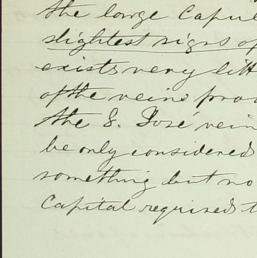 the large Capi
slightest signs of
exists very litt
of the veins prov
the S. José vein
be only considered
something but no
Capital required t